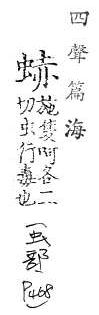 四聲篇海
䖨施隻呵各二
切虫行毒也
(虫部
P468)